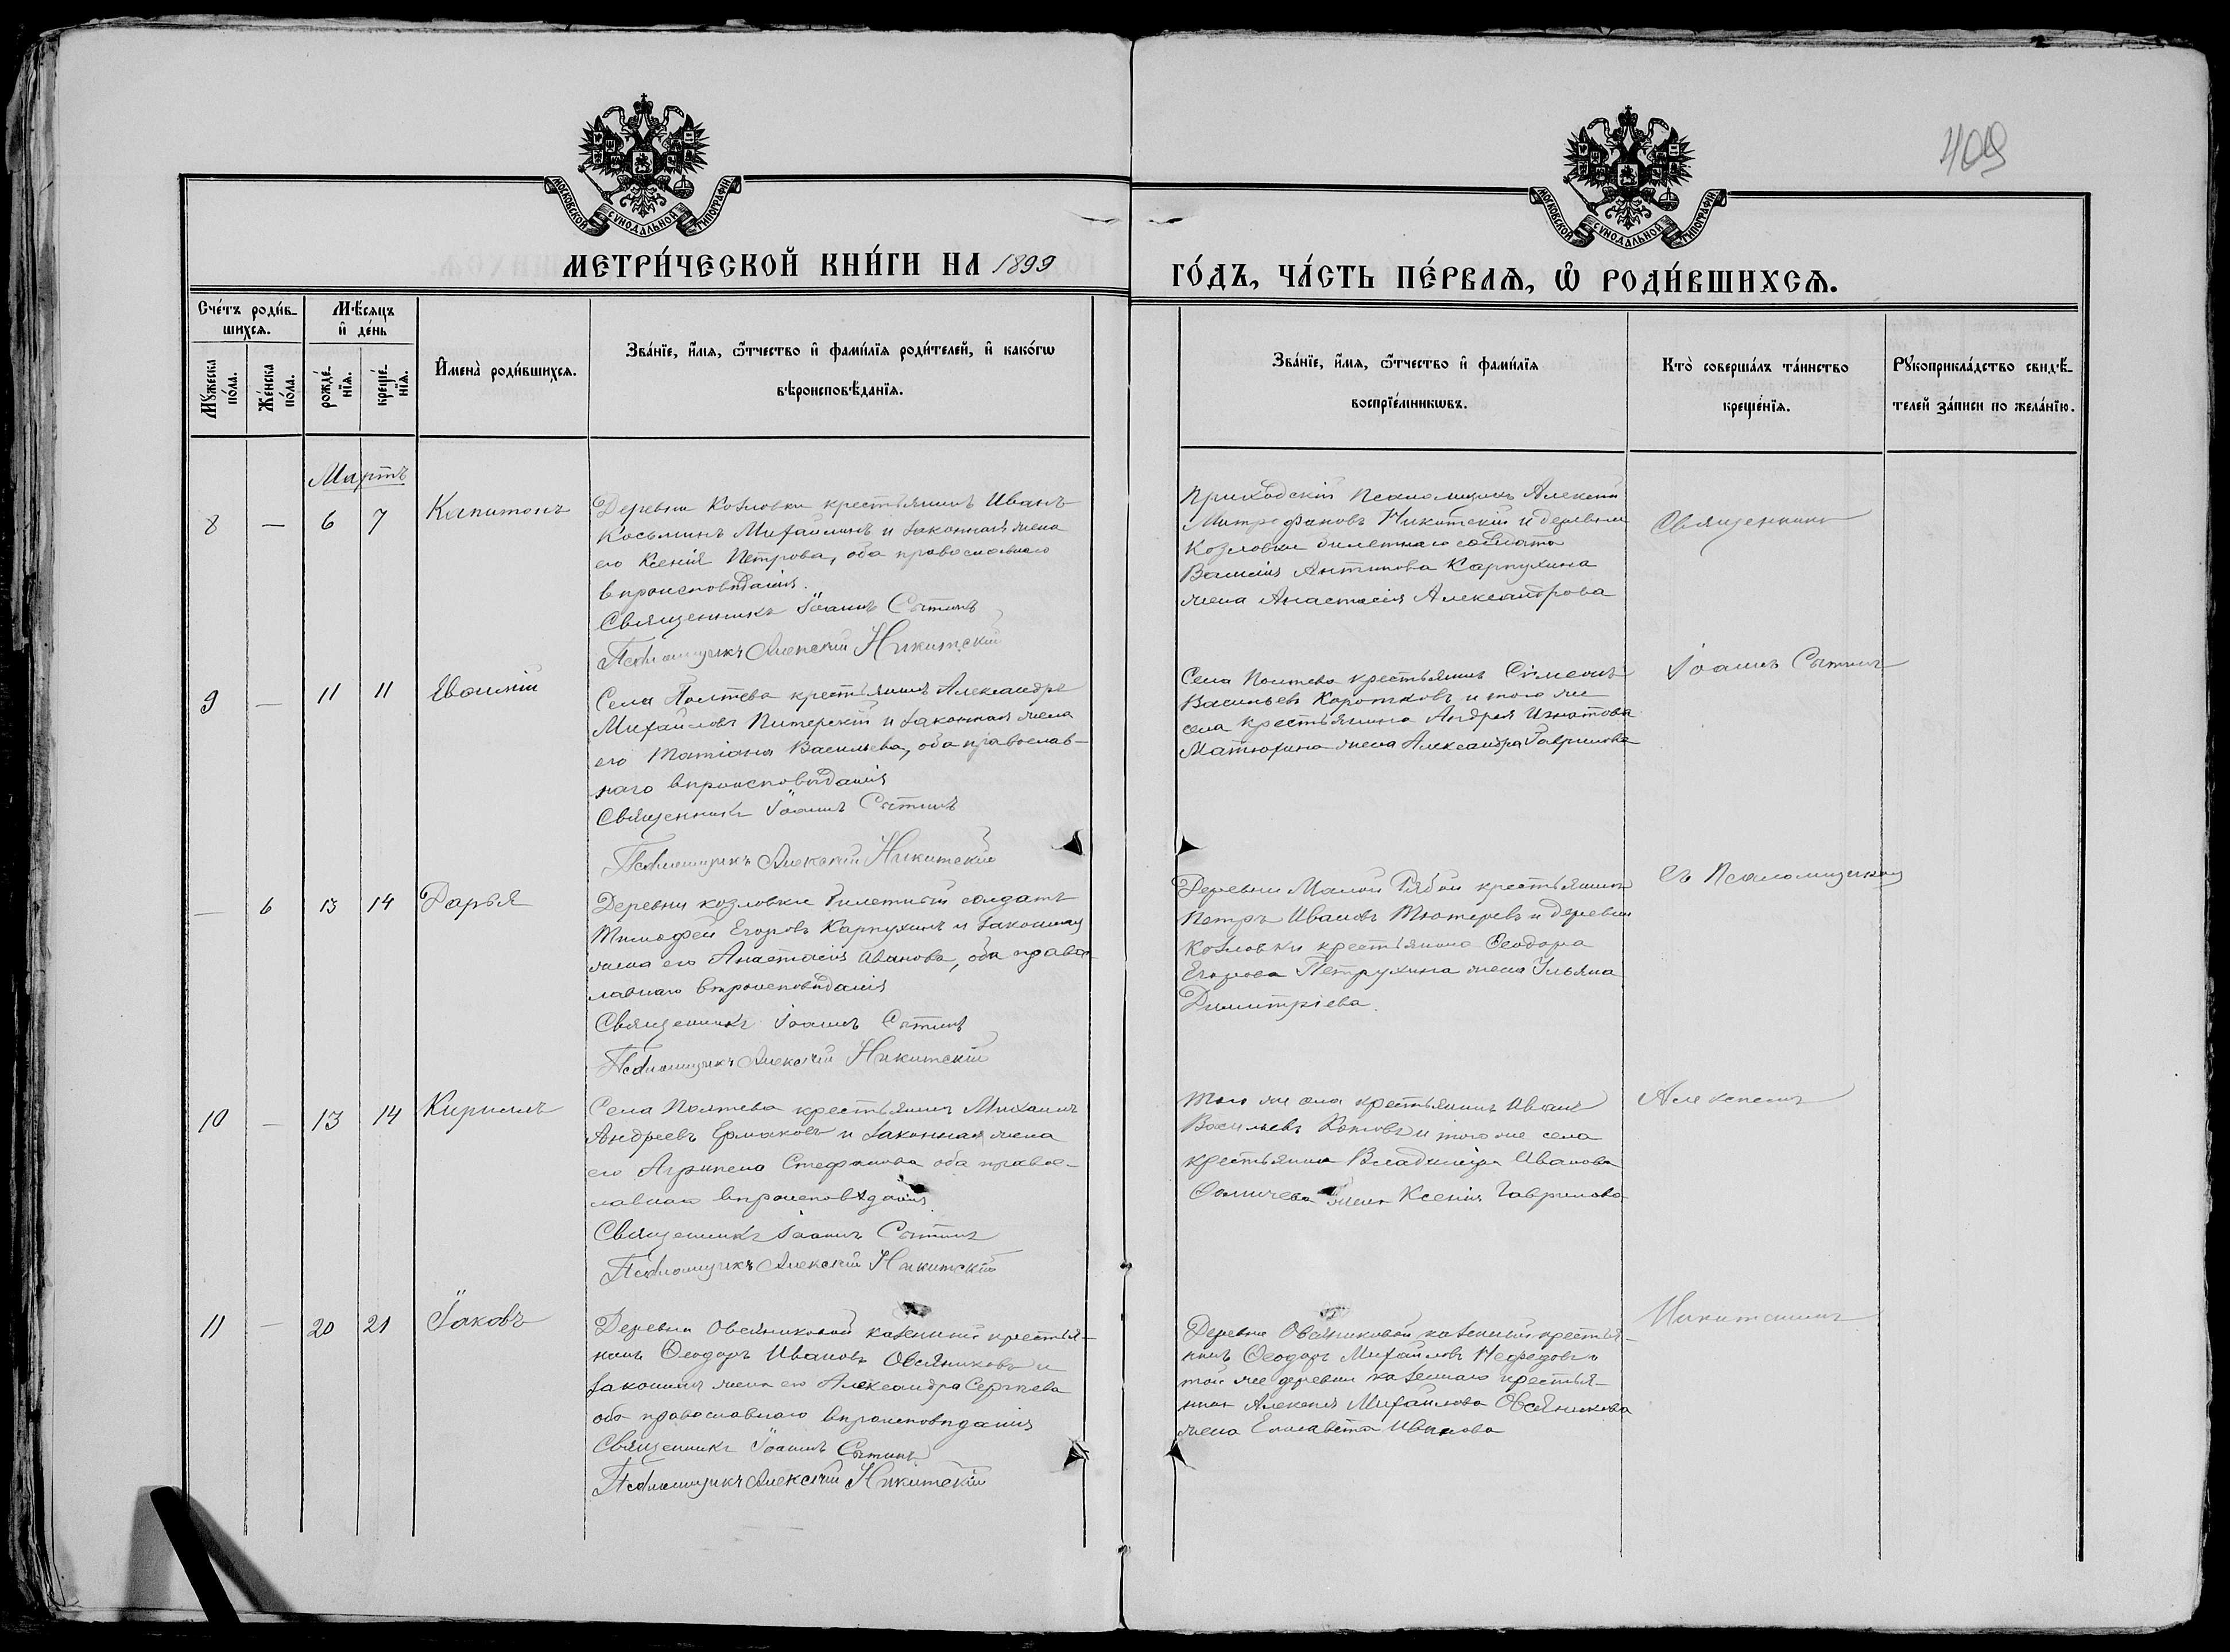 409
МОСКОВСКОЙ СѴНОДАЛЬНОЙ ТИПОГРАФІИ
МОСКОВСКОЙ СѴНОДАЛЬНОЙ ТИПОГРАФІИ
МЕТРИ́ЧЕСКОЙ КНИ́ГИ НА 1899
ГО́ДЪ, ЧА́СТЬ ПЕ́РВАѦ, Ѽ РОДИ́ВШИХСѦ.
Сче́тъ роди́в-
шихсѧ.
Мѣ́сѧцъ
и҆ де́нь
Мꙋжеска
по́ла.
Же́нска
по́ла.
рожде́-
нїѧ.
креще́-
нїѧ.
И҆мена̀ роди́вшихсѧ.
Зва́нїе, и҆́мѧ, ѻ҆́тчество и҆ фами́лїѧ роди́телей, и҆ како́гѡ
вѣроисповѣ́данїѧ.
Зва́нїе, и҆́мѧ, ѻ҆́тчество и҆ фами́лїѧ
воспрїе́мникѡвъ.
Кто̀ соверша́лъ та́инство
креще́нїѧ.
Рꙋкоприкла́дство свидѣ́-
телей за́писи по жела́нїю.
Мартъ
8 — 6 7 Капитонъ
Деревни Козловки крестьянинъ Иванъ
Косьминъ Михайлинъ и законная жена
его Ксенія Петрова, оба православнаго
вѣроисповѣданія.
Священникъ Іоаннъ Сытинъ
Псаломщикъ Алексѣй Никитскій
Приходскій Псаломщикъ Алексѣй
Митрофановъ Никитскій и деревни
Козловки билетнаго солдата
Василія Антипова Карпухина
жена Анастасія Александрова
Священникъ
9 — 11 11 Евѳимій
Села Полтева крестьянинъ Александръ
Михайловъ Питерскій и законная жена
его Татіана Васильева, оба православ-
наго вѣроисповѣданія
Священникъ Іоаннъ Сытинъ
Псаломщикъ Алексѣй Никитскій
Села Полтева крестьянинъ Сѵмеонъ
Васильевъ Коротковъ и того же
села крестьянина Андрея Игнатова
Матюхина жена Александра Гаврилова
Іоаннъ Сытинъ
— 6 13 14 Дарья
Деревни Козловки билетный солдатъ
Тимофей Егоровъ Карпухинъ и законная
жена его Анастасія Иванова, оба право-
лавнаго вѣроисповѣданія
Священникъ Іоаннъ Сытинъ
Псаломщикъ Алексѣй Никитскій
Деревни Малой крестьянинъ
Петръ Ивановъ и деревни
Козловки крестьянина Ѳеодора
Егорова Петрухина жена Ульяна
Димитріева.
съ Псаломщикомъ
10 — 13 14 Кириллъ
Села Полтева крестьянинъ Михаилъ
Андреевъ Ермаковъ и законная жена
его Агрипена Стефанова оба правос-
лавнаго вѣроисповѣданія
Священникъ Іоаннъ Сытинъ
Псаломщикъ Алексѣй Никитскій
Того же села крестьянинъ Иванъ
Васильевъ Котовъ и того же села
крестьянина Владиміра Иванова
Ѳомичева жена Ксенія Гаврилова
Алексѣемъ
11 — 20 21 Іаковъ
Деревни Овсяниковой казенный крестья-
нинъ Ѳеодоръ Ивановъ Овсяниковъ и
законная жена его Александра Сергѣева
оба православнаго вѣроисповѣданія
Священникъ Іоаннъ Сытинъ
Псаломщикъ Алексѣй Никитскій
Деревни Овсяниковой казенный крестья-
нинъ Ѳеодоръ Михайловъ Нефедовъ и
той же деревни казеннаго крестья-
нина Алексѣя Михайлова Овсяникова
жена Елисавета Иванова
Никитскимъ